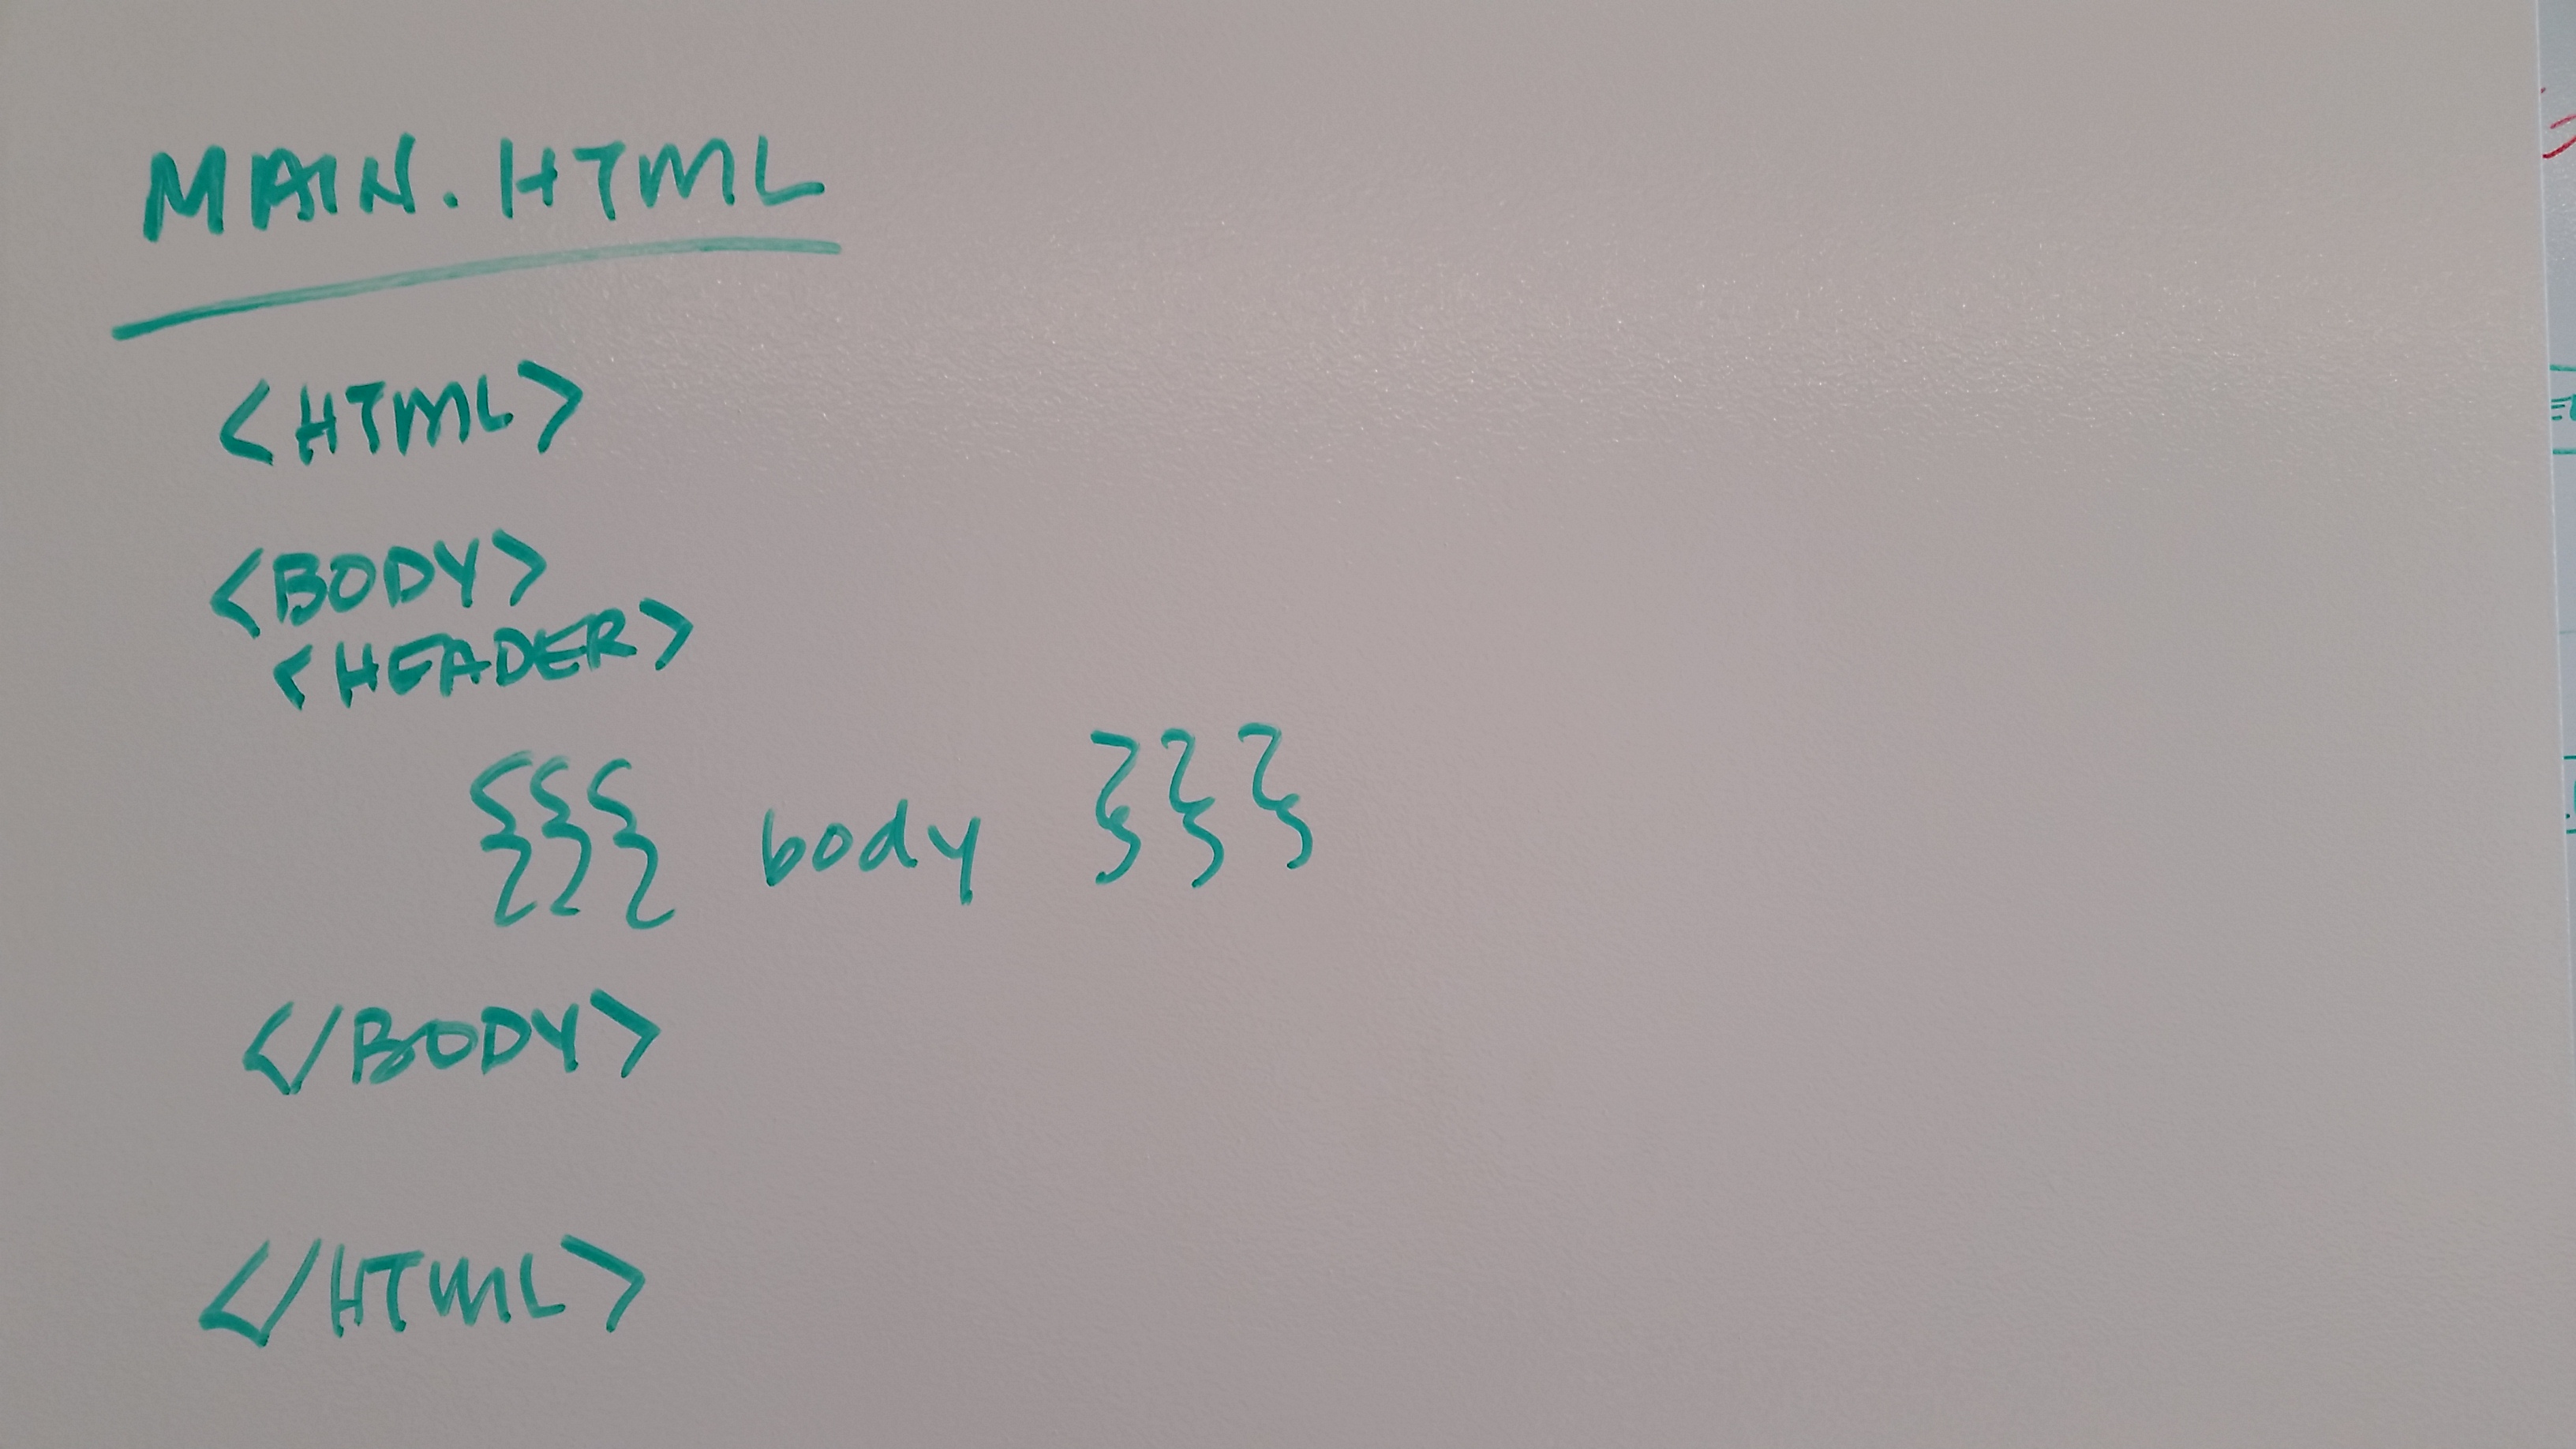 MAIN.HTML
<HTML>
<BODY>
<HEADER>
{{{ body }}}
</BODY>
</HTML>